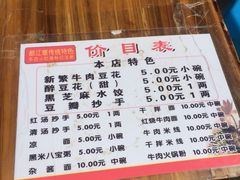 都江堰传统特色
价目表
本店特色
新繁牛肉豆花 5.00元 小碗
醉豆花(甜) 5.00元 小碗
黑芝麻水饺 5.00元 1两
豆瓣抄手 5.00元 1两
红汤抄手 5.00元 1两
清汤抄手 5.00元 1两
凉面 5.00元 小碗
黑米八宝粥 5.00元 小碗
杂酱面 10.00元 中碗
干拌面 10.00元 中碗
红烧牛肉面 10.00元 中碗
牛肉米线 10.00元 中碗
干拌米线 10.00元 中碗
牛肉火锅粉 10.00元 中碗